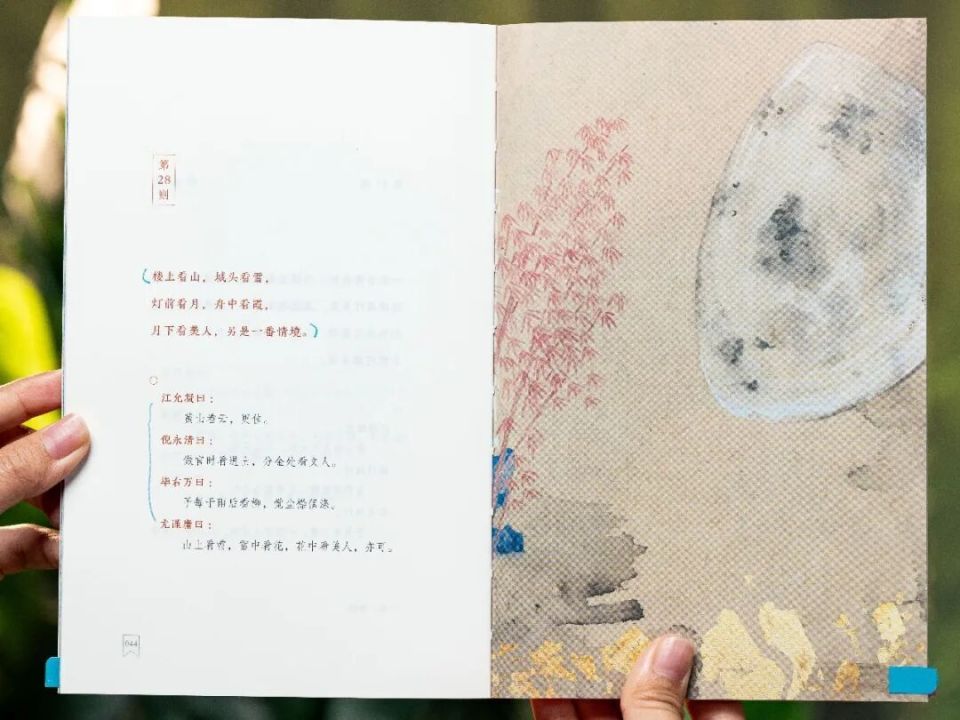 第
28
则
楼上看山，城头看雪，
灯前看月，舟中看霞，
月下看美人，另是一番情境。
江允凝曰：
黄山看云，更佳。
倪永清曰：
做官时看进士，分金处看文人。
毕右万曰：
予每于雨后看柳，觉尘襟俱涤。
尤谨庸曰：
山上看雪，雪中看花，花中看美人，亦可。
044